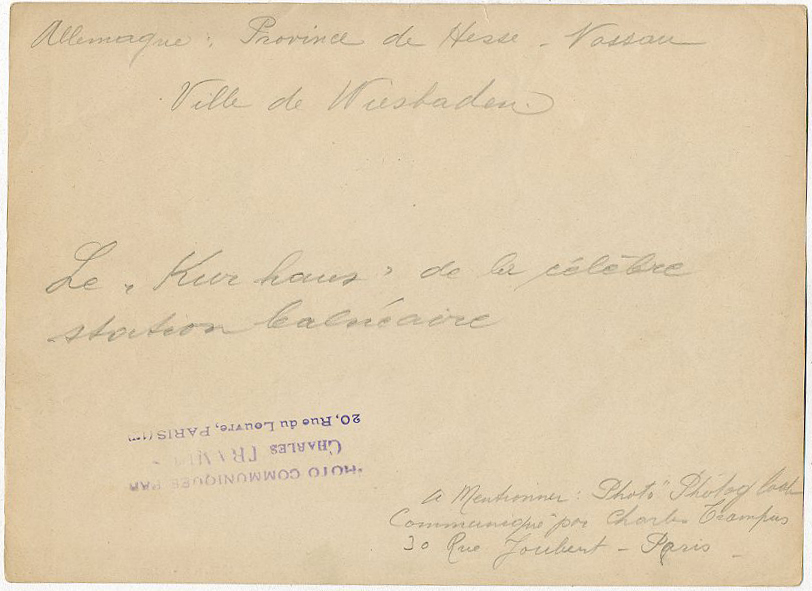 Allemagne : Province de Hesse - Nassau
Ville de Wiesbaden
Le "Kurhaus" de la célèbre
station balnéaire
PHOTO COMMUNIQUÉE PAR
CHARLES TRAMPUS
20, Rue du Louvre, PARIS (1er)
A Mentionner : Photo "Photoglobe
Communiqué" par Charles Trampus
30 Rue Joubert - Paris